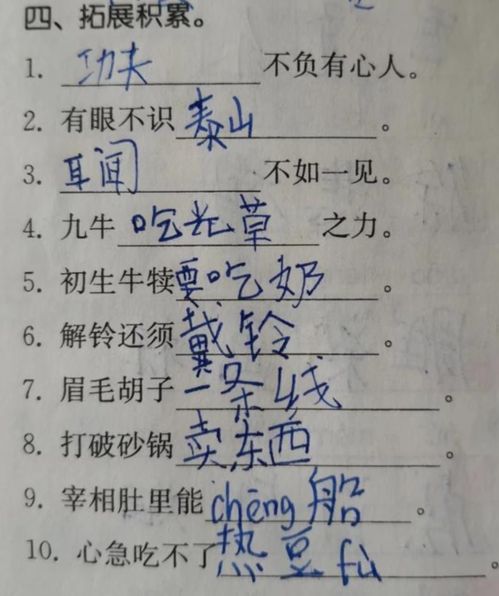 四、拓展积累。
1. 功夫不负有心人。
2. 有眼不识泰山。
3. 耳闻不如一见。
4. 九牛吃光草之力。
5. 初生牛犊要吃奶。
6. 解铃还须戴铃。
7. 眉毛胡子一条线。
8. 打破砂锅卖东西。
9. 宰相肚里能chēng船。
10. 心急吃不了热豆fù。